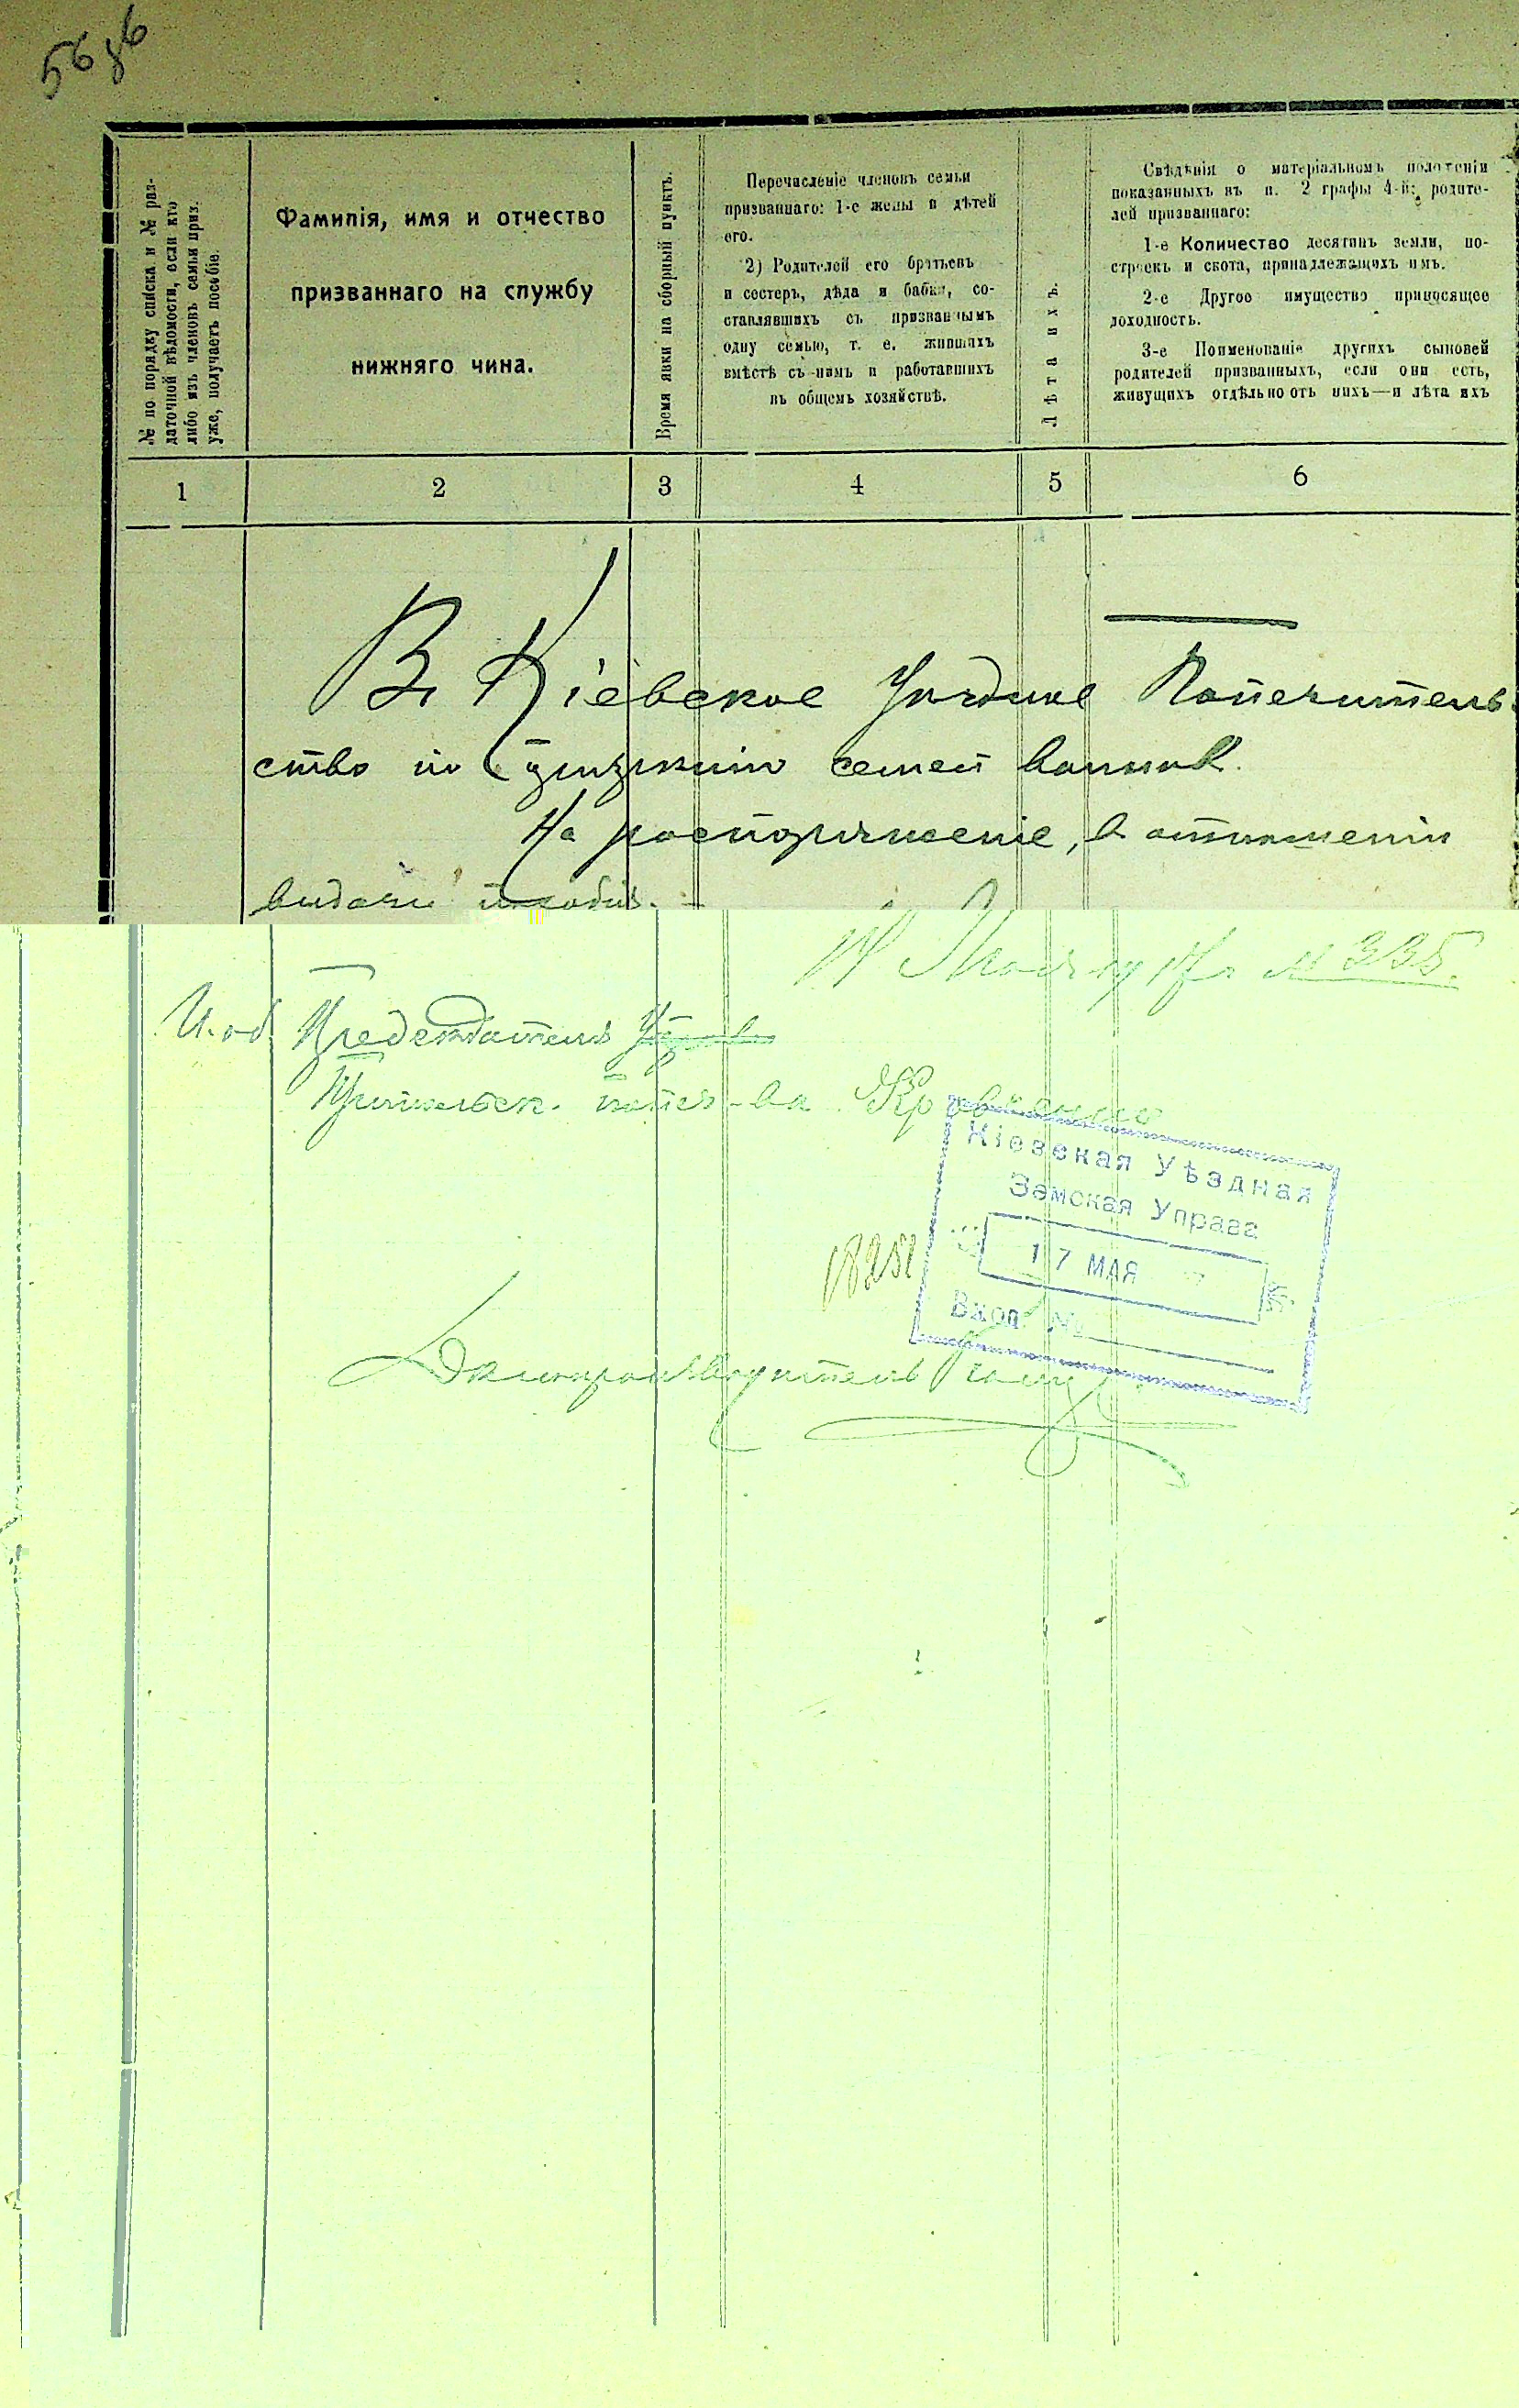 № по порядку списка и № раз-
даточной вѣдомости, если кто
либо изъ членовъ семьи приз.
уже, получаетъ пособіе.
Фамилія, имя и отчество
призваннаго на службу
нижняго чина.
Время явки на сборный пунктъ.
Перечисленіе членовъ семьи
призваннаго: 1-е жены и дѣтей
его.
2) Родителей его братьевъ
и сестеръ, дѣда и бабки, со-
ставлявшихъ съ призваннымъ
одну семью, т. е. жившихъ
вмѣстѣ съ нимъ и работавшихъ
въ общемъ хозяйствѣ.
Лѣта ихъ.
Свѣдѣнія о матеріальномъ положеніи
показанныхъ въ п. 2 графы 4-й: родите-
лей призваннаго:
1-е Количество десятинъ земли, по-
строекъ и скота, принадлежащихъ имъ.
2-е Другое имущество приносящее
доходность.
3-е Поименованіе другихъ сыновей
родителей призванныхъ, если они есть,
живущихъ отдѣльно отъ нихъ—и лѣта ихъ
1 2 3 4 5 6
Въ Кіевское Уѣздное Попечитель-
ство по семей воинов.
На распоряженіе, в отношеніи
выдачи пособія.
14 Мая 1917 г. № 335.
И. об. Предсѣдатель
попеч-ва
Кіевская Уѣздная
Земская Управа
17 МАЯ
Вход. №
18251
Дѣлопроизводитель